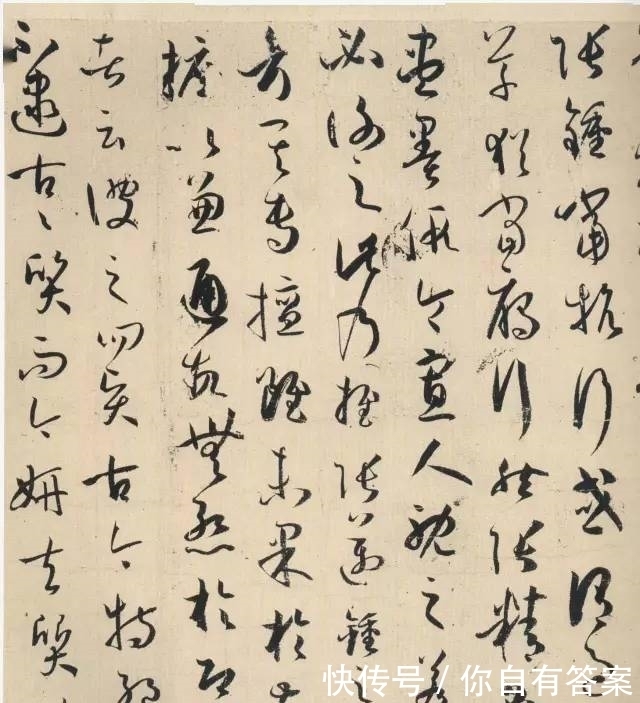 張鍾當抗行或謂過
草猶當雁行然張精熟
盡墨假令寡人耽之若
必謝之此乃推張邁鍾之
考其專擅雖未果於前
摭以兼通故無慚於即
者云彼之四賢古今特絕
不逮古〻質而今妍夫質
快传号 / 你自有答案